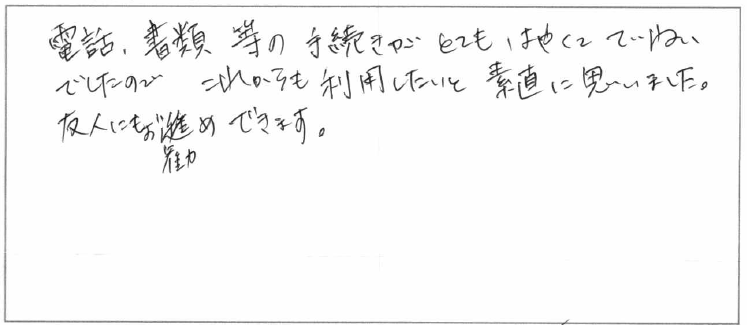 電話、書類 等の 手続きが とても はやくて ていねい
でしたので これからも 利用したいと 素直に思いました。
友人にもお進め できます。
勧